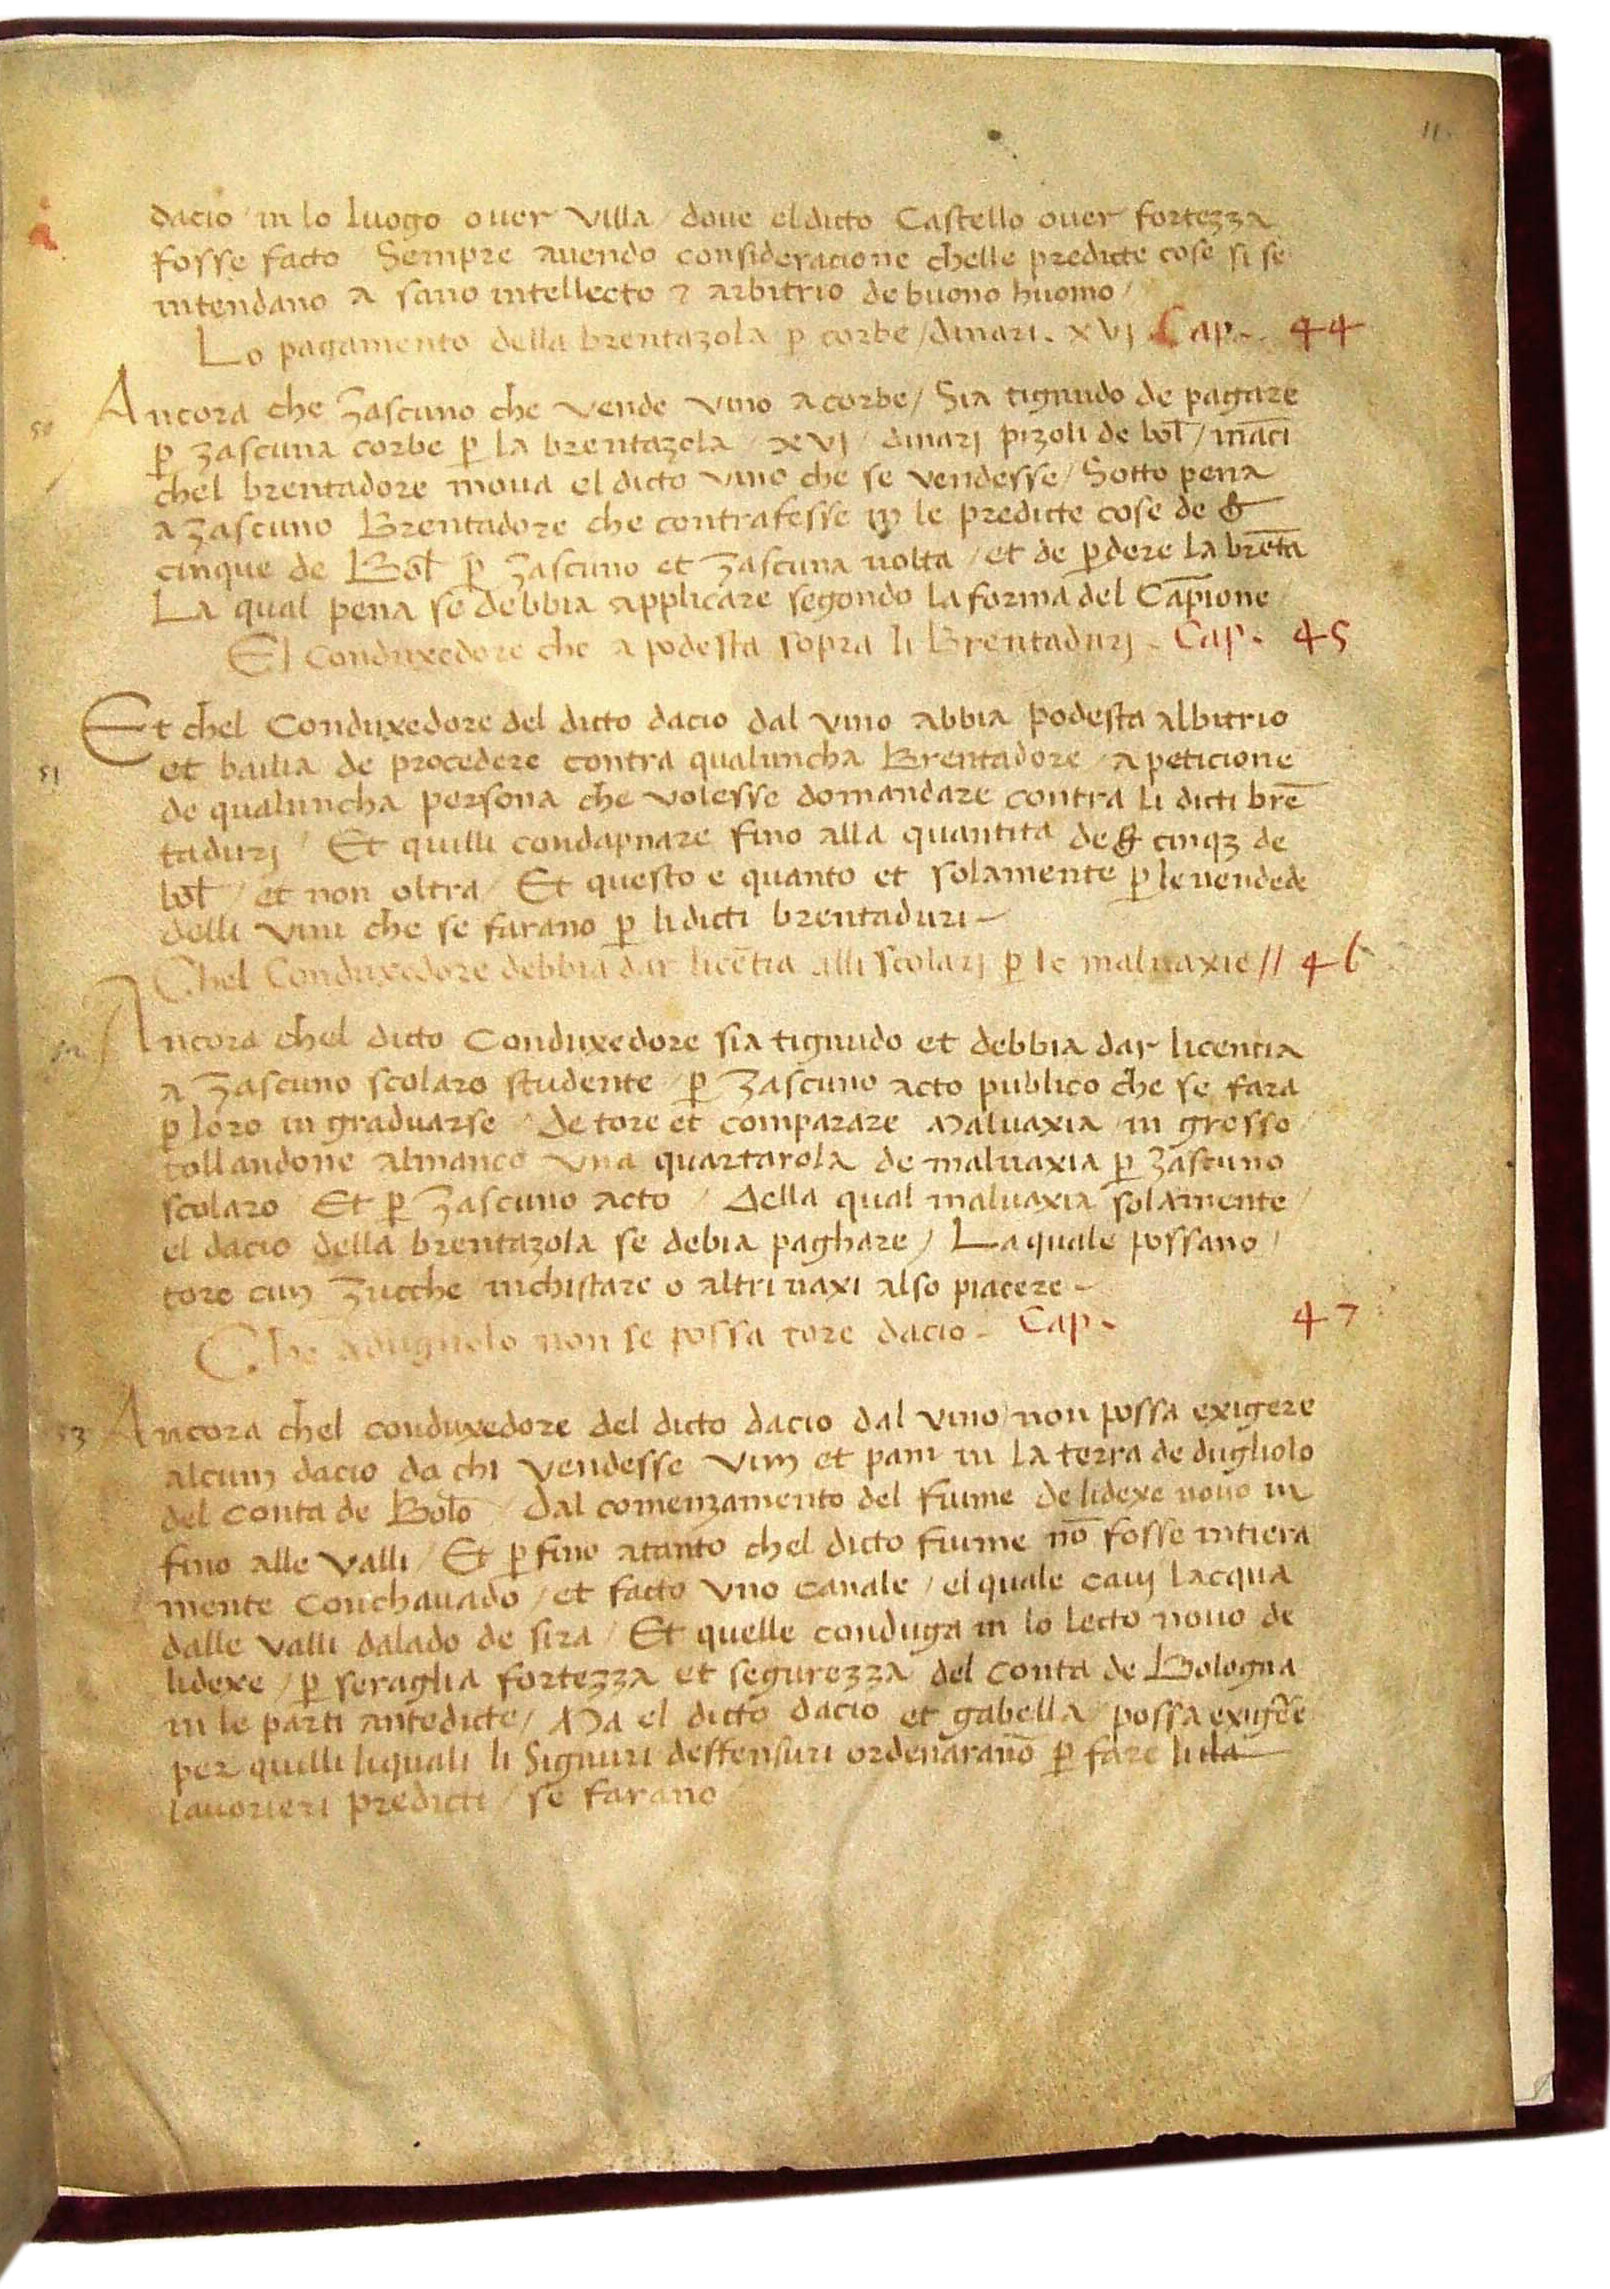 11.
dacio / in lo luogo over villa / dove el dicto Castello over fortezza
fosse facto Sempre avendo consideracione chelle predicte cose si se
intendano a sano intellecto ⁊ arbitrio de buono huomo /
Lo pagamento della brentazola p̱ corbe / dinari . xvj Cap. 44
50
Ancora che zascuno che vende vino a corbe / Sia tignudo de pagare
p̱ zascuna corbe p̱ la brentazola / xvj / dinarj pizoli de bol̄ / inānci
chel brentadore mova el dicto vino che se vendesse / Sotto pena
a zascuno Brentadore che contrafesse in le predicte cose de ₤
cinque de Bol̄ p̱ zascuno et zascuna volta / et de p̱dere la brēta
La qual pena se debbia applicare segondo la forma del Cāpione
El Conduxedore che a podesta sopra li Brentadurj . Cap. 45
51
Et chel Conduxedore del dicto dacio dal vino abbia podesta albitrio
et bailia de procedere contra qualuncha Brentadore / a peticione
de qualuncha persona che volesse domandare contra li dicti brē
tadurj / Et quilli condapnare fino alla quantita de ₤ cinqꝫ de
bol̄ / et non oltra / Et questo e quanto et solamente p̱ le vendede
delli vini che se farano p̱ li dicti brentaduri –
Chel Conduxedore debbia dar licētia alli scolarj p̱ le malvaxie // 46
52
Ancora chel dicto Conduxedore sia tignudo et debbia dar licentia
a zascuno scolaro studente / p̱ zascuno acto publico che se fara
p̱ loro in graduarse / de tore et comparare malvaxia / in grosso /
tollandone almanco una quartarola de malvaxia p̱ zascuno
scolaro Et p̱ zascuno acto / Della qual malvaxia solamente /
el dacio della brentazola se debia paghare / La quale possano /
tore cum zucche inchistare o altri vaxi also piacere –
Che a dugnolo non se possa tore dacio – Cap. 47
53
Ancora chel conduxedore del dicto dacio dal vino / non possa exigere
alcum dacio da chi vendesse vim et pani in la terra de dugliolo
del Conta de Bolō / dal comenzamento del fiume de lidexe novo in
fino alle valli / Et p̱ fino atanto chel dicto fiume nō fosse intiera
mente Conchavado / et facto uno canale / el quale cavj lacqua
dalle valli dalado de sira / Et quelle conduga in lo lecto novo de
lidexe / p̱ seraglia fortezza et segurezza del Conta de Bologna
in le parti antedicte / Ma el dicto dacio et gabella / possa exigere
per quilli liquali li Signuri deffensuri ordenarano p̱ fare
lavorieri predicti / se farano